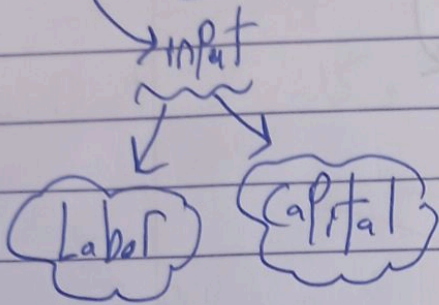 input
Labor Capital